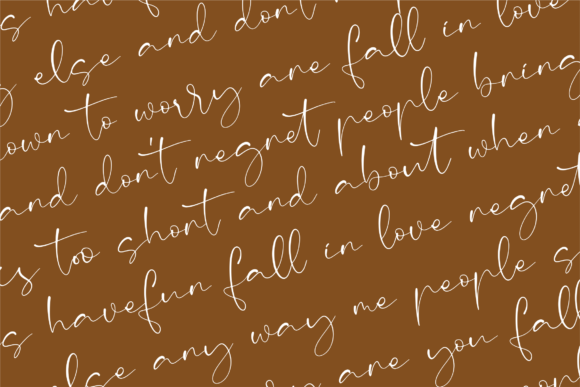 else and don't
own to worry are fall in love
and don't regret people bring
is too short and about when
s havefun fall in love regret
else any way me people s
are you fall